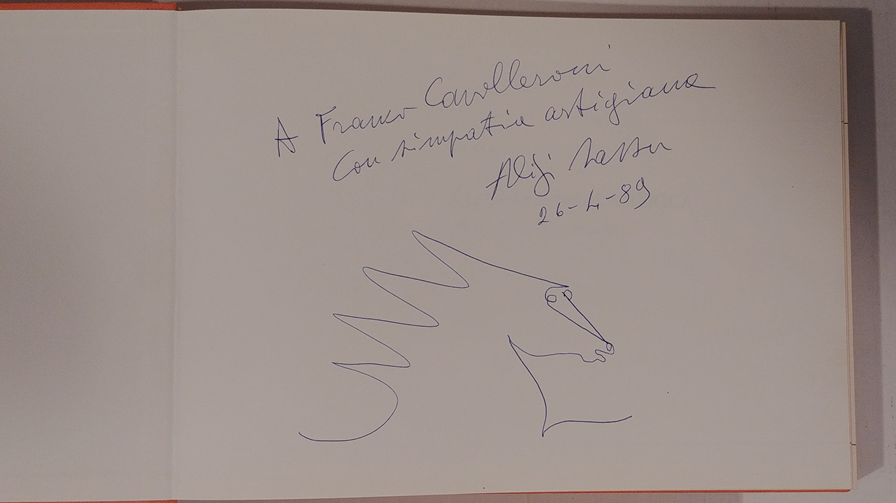 A Franco Cavalleroni
Con simpatia artigiana
Aligi Sassu
26-4-89